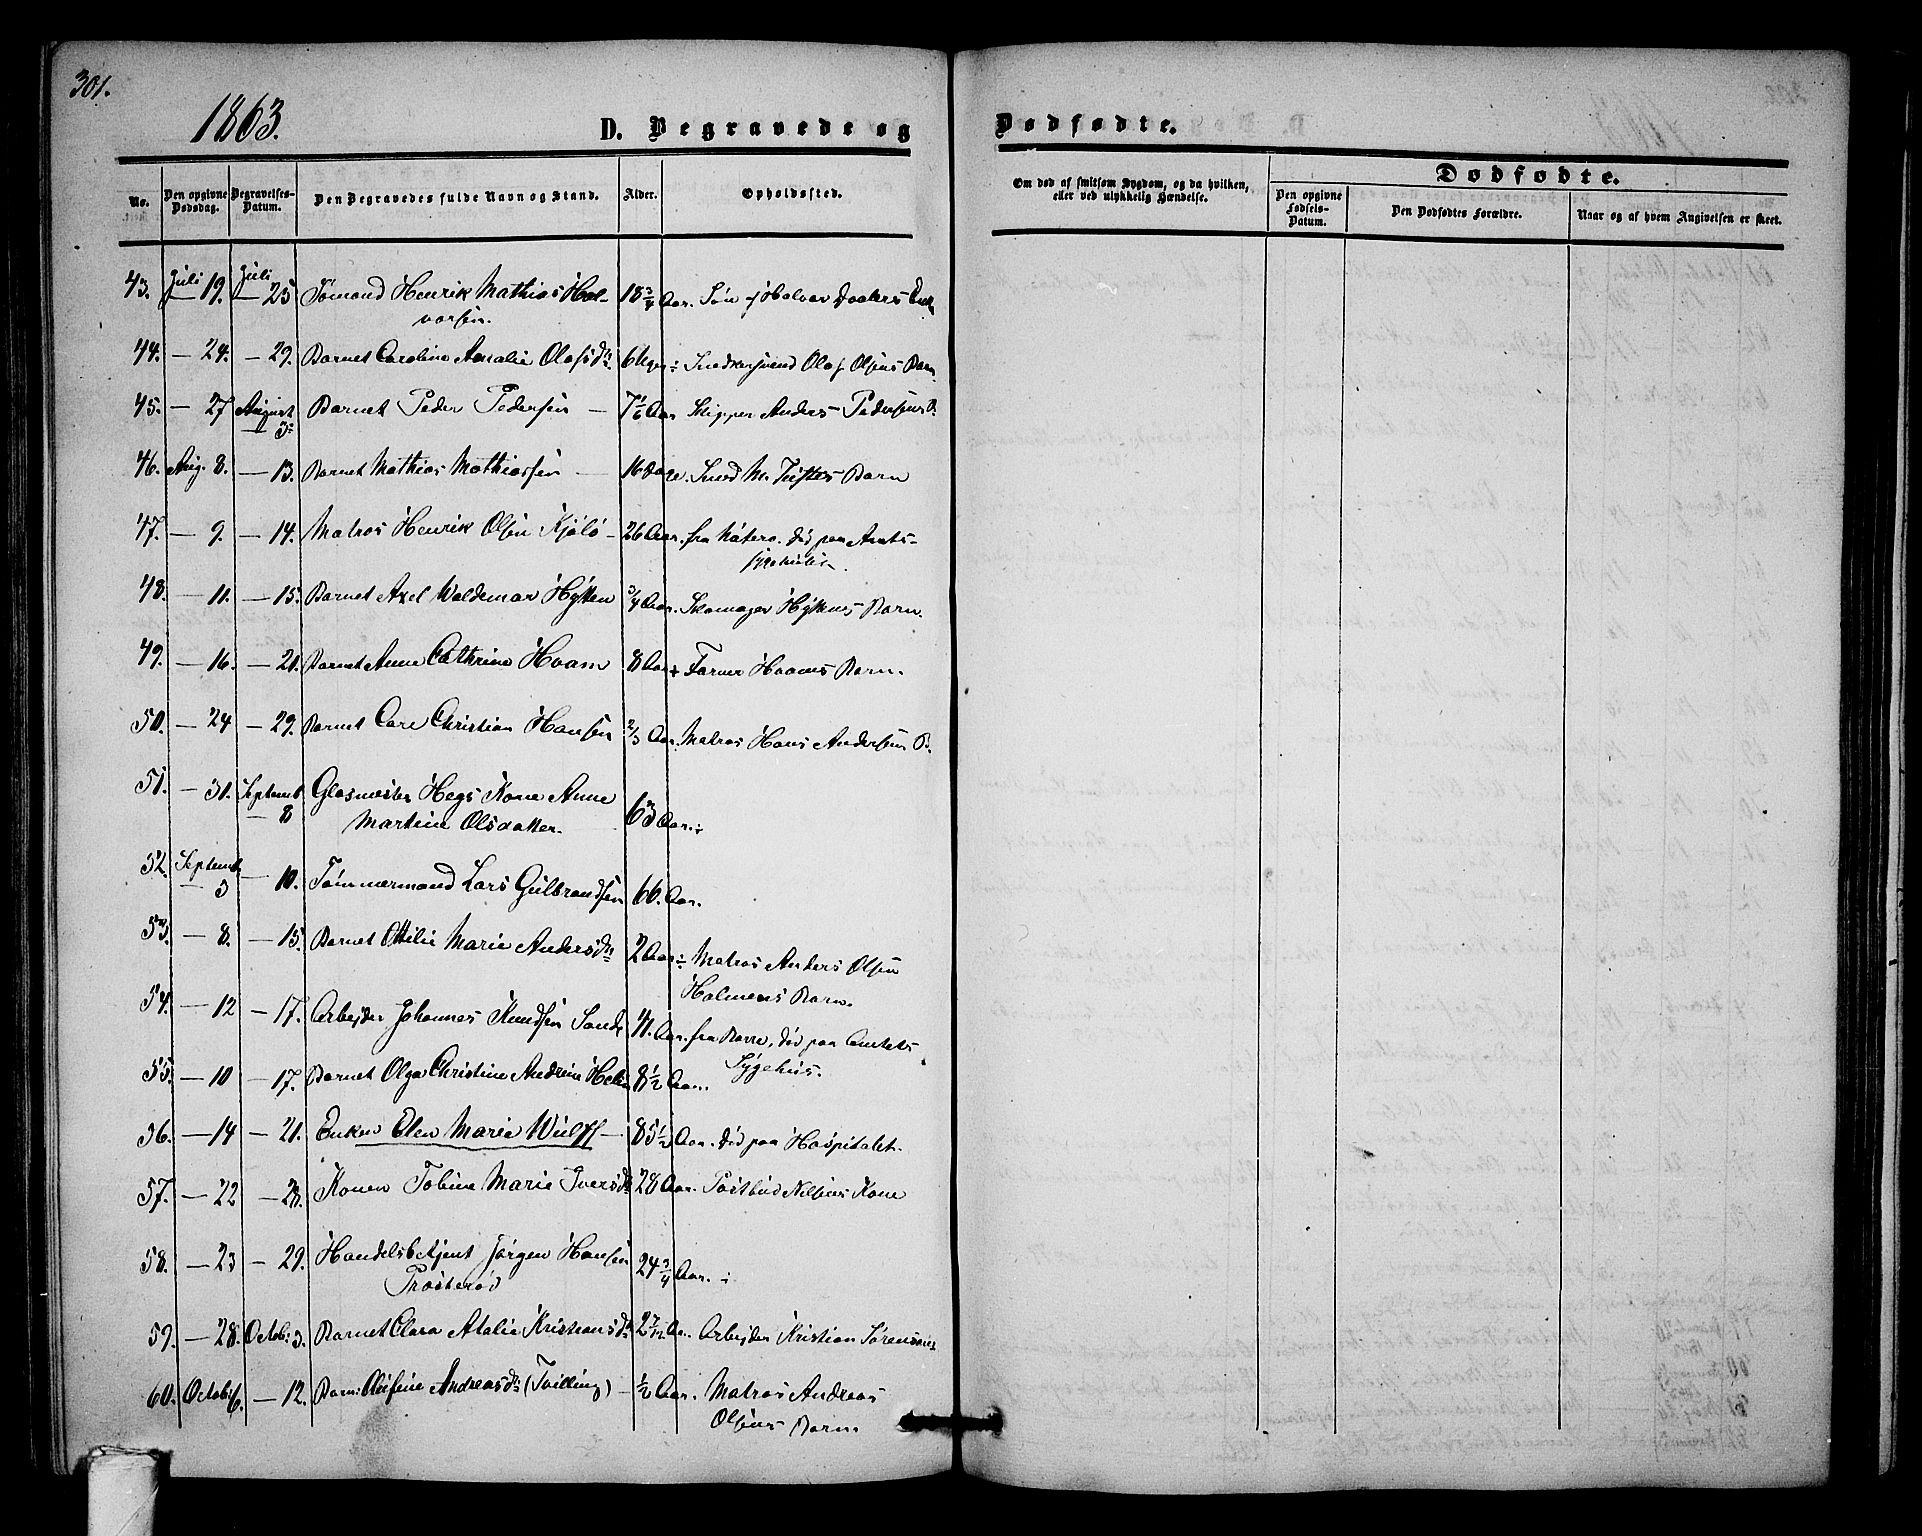 301.
1863.
D. Begravede og
Dødfødte.
No.
Den opgivne Dødsdag.
Begravelses-Datum.
Den Begravedes fulde Navn og Stand.
Alder.
Opholdssted.
Om død af smitsom Sygdom, og da hvilken, eller ved ulykkelig Hændelse.
Dødfødte.
Den opgivne Fødsels-Datum.
Den Dødfødtes Forældre.
Naar og af hvem Angivelsen er skeet.
43. Juli 19. Juli 25 Sømand Henrik Mathias Hal- 18 3/4 Aar. Søn af Halvor
vorsen.
44. — 24. — 29. Barnet Caroline Amalie Olafsd: 6 Uger ÷ Snedkersvend Olaf Olsens Barn.
45. — 27 August 3: Barnet Peder Pedersen — 7 1/6 Aar Skipper Anders Pedersens B.
46. Aug. 8. — 13. Barnet Mathias Mathiassen — 16 Dage. Smed M. Tuftes Barn
47. — 9. — 14. Matros Henrik Olsen Kjølø — 26 Aar. fra Natero. død paa Amts-
sygehuset.
48. — 11. — 15. Barnet Axel Waldemar Hytten 3/4 Aar. Skomager Hyttens Barn.
49. — 16. — 21. Barnet Anne Cathrine Hvam 8 Aar + Farver Hvams Barn.
50. — 24 — 29. Barnet Carl Christian Hansen 2/3 Aar. Matros Hans Andersens B.
51. — 31. Septemb. — 8 Glasmester Hegs Kone Anne 63 Aar. ÷
Martine Olsdatter.
52. Septemb. — 3 — 10. Tømmermand Lars Gulbrandsen 66. Aar.
53. — 8. — 15. Barnet Ottilie Marie Andersd: 2 Aar ÷ Matros Anders Olsen
Holmens Barn.
54. — 12 — 17. Arbejder Johannes Knudsen Sande 41. Aar. fra Borre, død paa Amtets
Sygehus.
55. — 10 — 17. Barnet Olga Christine Andrine 8 1/2 Aar.
56. — 14 — 21. Enken Elen Marie Wulff — 85 1/2 Aar. død paa Hospitalet.
57. — 22 — 28. Konen Tobine Marie Iversd: 28 Aar. Postbud Nilsens Kone
58. — 23 — 29. Handelsbetjent Jørgen Hansen 24 3/4 Aar. ÷
Prøsterød
59. — 28. Octob: 3. Barnet Clara Atalie Kristiansd: 2 7/12 Aar. Arbejder Kristian Sørensens
60. Octob: 6. — 12. Barn: Andreasd: (Tvilling) — 1/2 Aar. Matros Andreas
Olsens Barn.